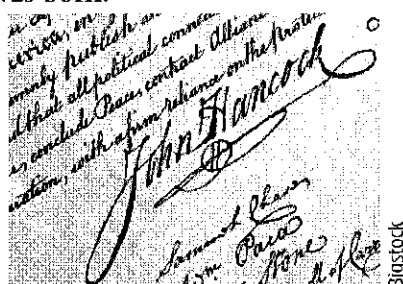 emnly publish an
d that all political connec
conclude Peace, contract Alliance
ation, with a firm reliance on the protec
John Hancock
Samuel Chase
Wm Paca
Stone
ll of Carr
Bigstock